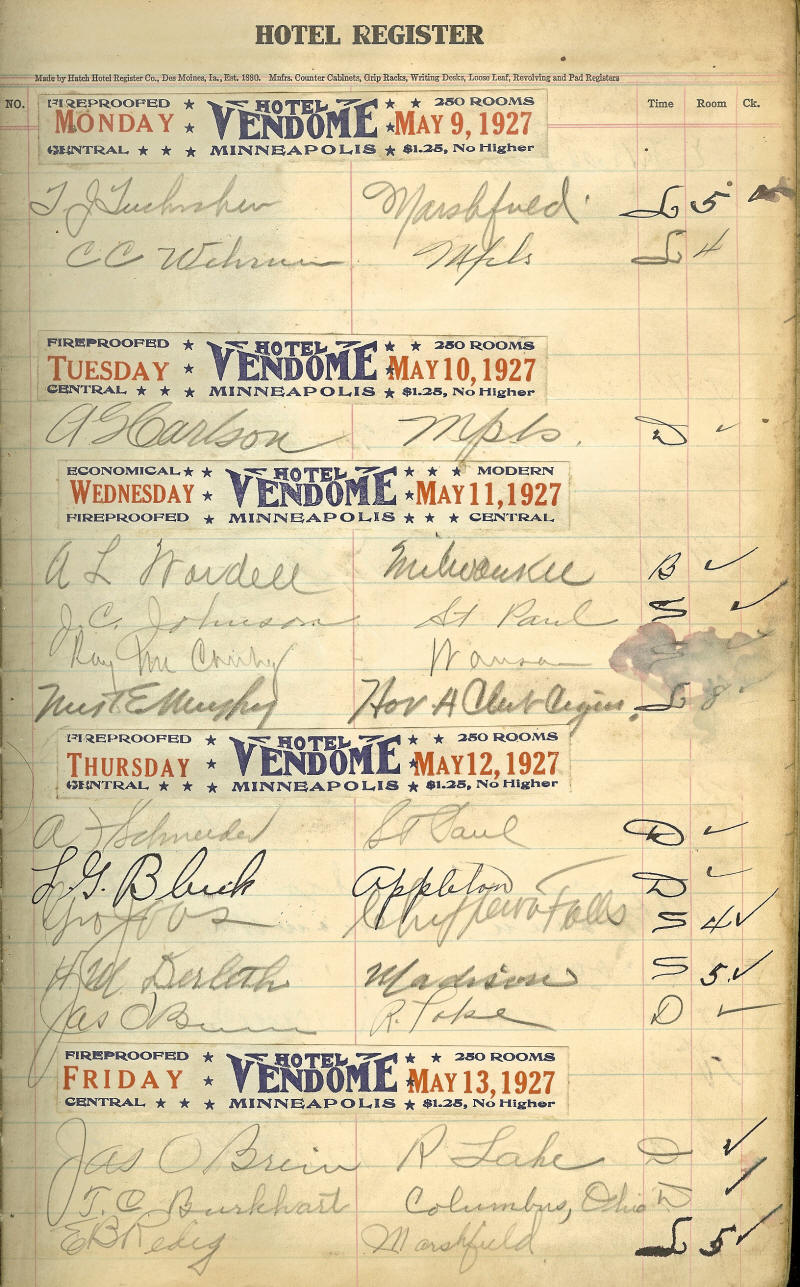 HOTEL REGISTER
Made by Hatch Hotel Register Co., Des Moines, Ia., Est. 1880. Mnfrs. Counter Cabinets, Grip Racks, Writing Desks, Loose Leaf, Revolving and Pad Registers
NO. Time Room Ck.
FIREPROOFED ★ HOTEL ★ ★ 250 ROOMS
MONDAY ★ VENDOME ★ MAY 9, 1927
CENTRAL ★ ★ ★ MINNEAPOLIS ★ $1.25, No Higher
T J Marshfield L 5
C C Mpls L 4
FIREPROOFED ★ HOTEL ★ ★ 250 ROOMS
TUESDAY ★ VENDOME ★ MAY 10, 1927
CENTRAL ★ ★ ★ MINNEAPOLIS ★ $1.25, No Higher
A G Carlson Mpls. D ✓
ECONOMICAL ★ ★ HOTEL ★ ★ ★ MODERN
WEDNESDAY ★ VENDOME ★ MAY 11, 1927
FIREPROOFED ★ MINNEAPOLIS ★ ★ ★ CENTRAL
A L Wardell Milwaukee B ✓
J. C. Johnson St Paul S ✓
Ray Mc S ✓
E Murphy L 8
FIREPROOFED ★ HOTEL ★ ★ 250 ROOMS
THURSDAY ★ VENDOME ★ MAY 12, 1927
CENTRAL ★ ★ ★ MINNEAPOLIS ★ $1.25, No Higher
A F Schneider St Paul D ✓
L. G. Appleton D ✓
Chippewa Falls S 4 ✓
H M Derleth Madison S 5 ✓
Jas O'Brien R. Lake D ✓
FIREPROOFED ★ HOTEL ★ ★ 250 ROOMS
FRIDAY ★ VENDOME ★ MAY 13, 1927
CENTRAL ★ ★ ★ MINNEAPOLIS ★ $1.25, No Higher
Jas O Brein R Lake D ✓
T. C. Burkhart Columbus, Ohio D ✓
E B Redig Marshfield L 5 ✓